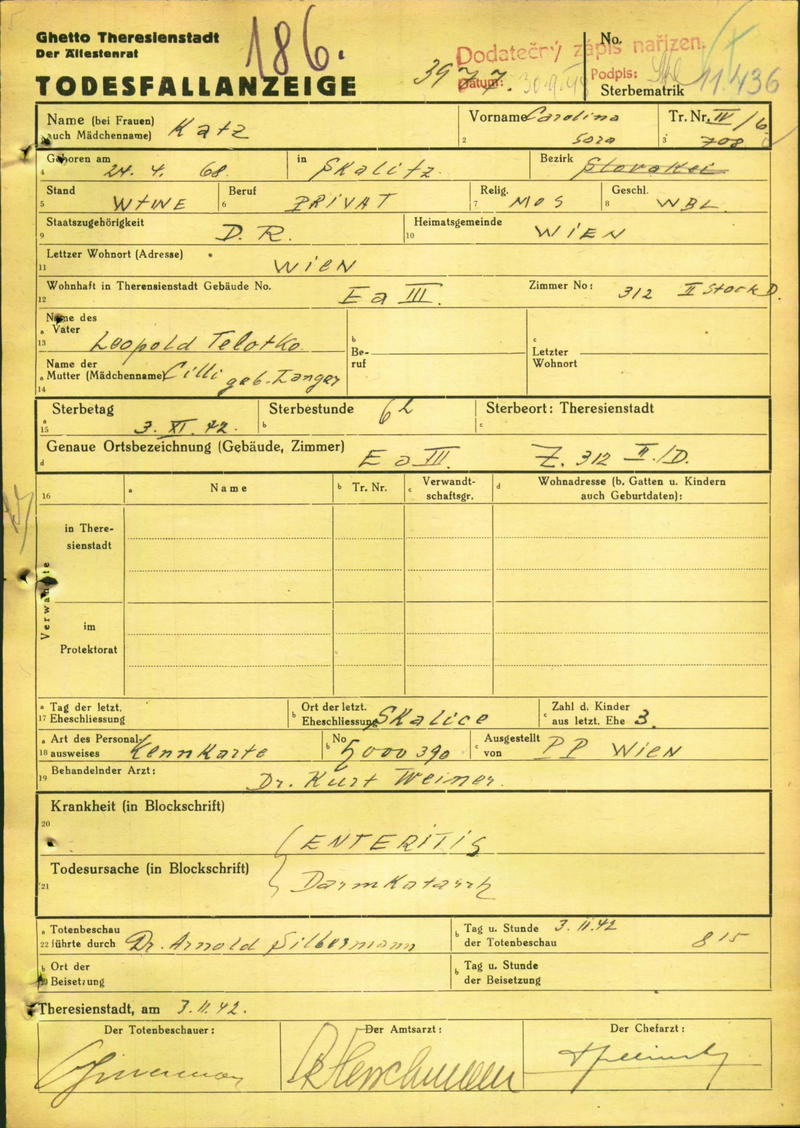 Ghetto Theresienstadt
Der Ältestenrat
TODESFALLANZEIGE
186.
3977.
Dodatečný zápis nařízen.
Datum: 30.9.
Podpis:
No.
Sterbematrik 11.436
Name (bei Frauen) auch Mädchenname) Katz
Vorname Carolina Sara
2
Tr. Nr. IV/6 708
3
Geboren am 24. 4. 68.
4
in Skalitz
Bezirk Slovakei
Stand WTWE
5
Beruf PRIVAT
6
Relig. MOS
7
Geschl. WBL
8
Staatszugehörigkeit D. R.
9
Heimatsgemeinde WIEN
10
Lettzer Wohnort (Adresse) WIEN
11
Wohnhaft in Therensienstadt Gebäude No. E a III.
12
Zimmer No: 312 II Stock D.
Name des
a Vater Leopold
13
b Be-ruf
c Letzter Wohnort
Name der
a Mutter (Mädchenname) Cilli geb. Langer
14
Sterbetag 3. XI. 42.
a 15
Sterbestunde 6h
b
Sterbeort: Theresienstadt
c
Genaue Ortsbezeichnung (Gebäude, Zimmer) E a III. Z. 312 II./D.
d
16
a Name
b Tr. Nr.
c Verwandt-schaftsgr.
d Wohnadresse (b. Gatten u. Kindern auch Geburtdaten):
Verwandte
in There-sienstadt
im Protektorat
a Tag der letzt.
17 Eheschliessung
b Ort der letzt. Eheschliessung Skalice
c Zahl d. Kinder aus letzt. Ehe 3.
a Art des Personal-
18 ausweises Kennkarte
b No 5000 390
c Ausgestellt von PP WIEN
19 Behandelnder Arzt: Dr. Kurt Weiner.
Krankheit (in Blockschrift)
20
ENTERITIS
Todesursache (in Blockschrift)
21
Darmkatarrh
a Totenbeschau
22 führte durch Dr. Arnold Silbermann
b Tag u. Stunde der Totenbeschau 3. 11. 42 8 15
b Ort der Beisetzung
b Tag u. Stunde der Beisetzung
Theresienstadt, am 3. 11. 42.
Der Totenbeschauer:
Der Amtsarzt:
Der Chefarzt: